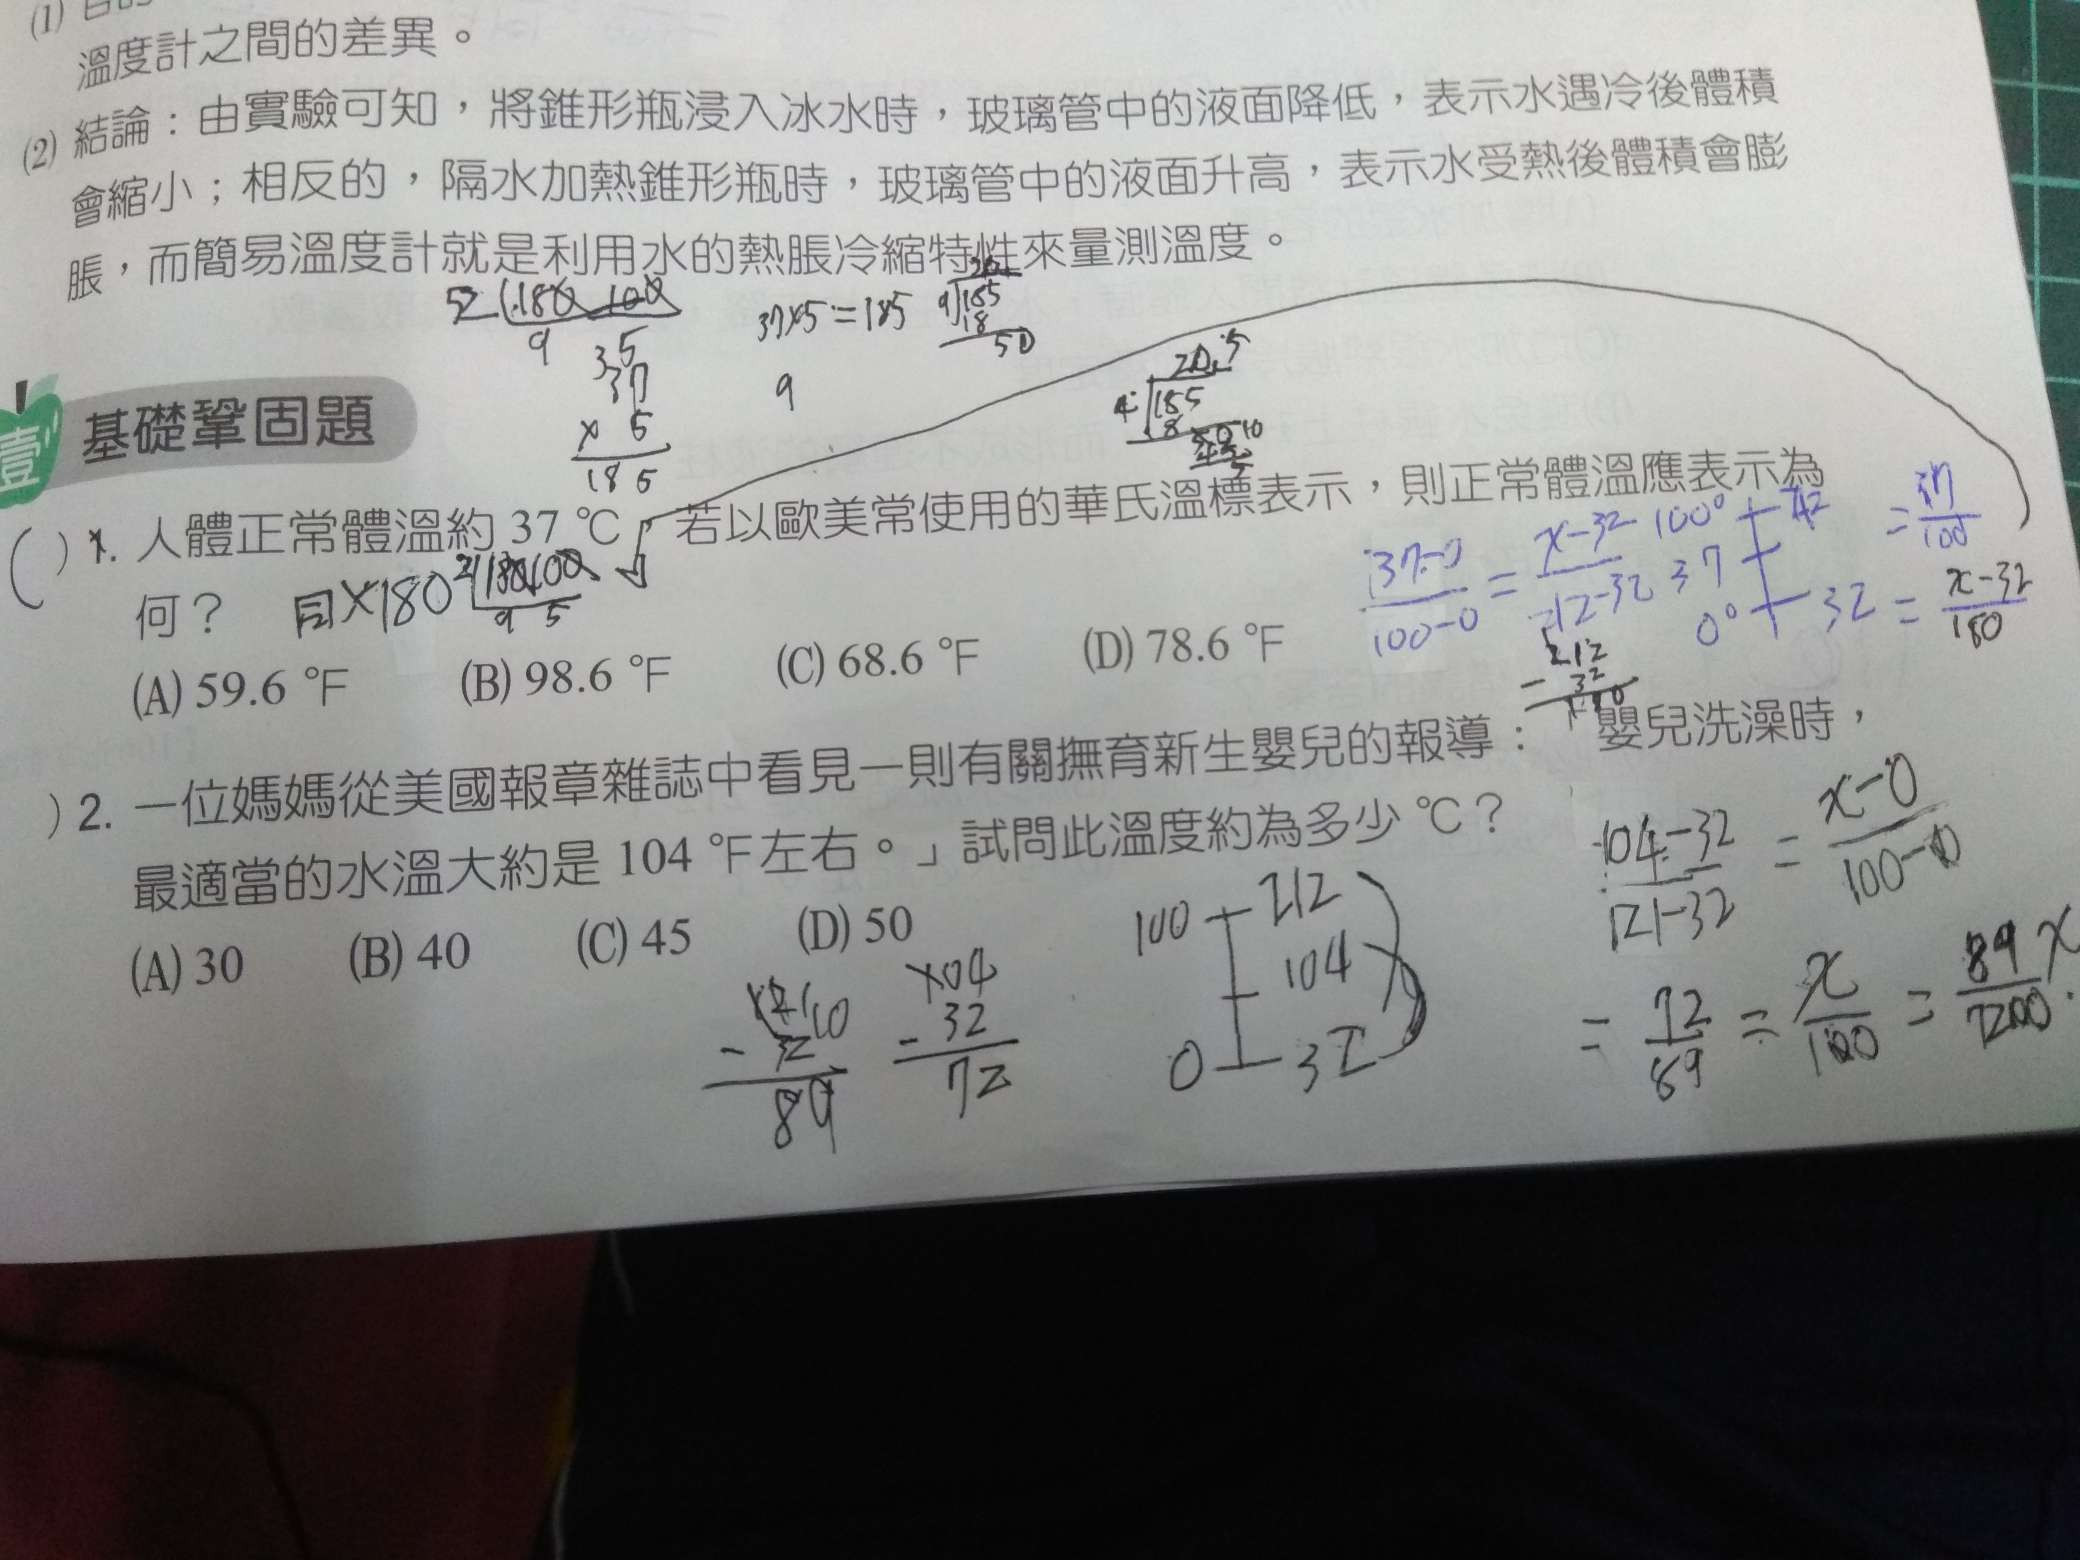 (1)
溫度計之間的差異。
(2) 結論：由實驗可知，將錐形瓶浸入冰水時，玻璃管中的液面降低，表示水遇冷後體積
會縮小；相反的，隔水加熱錐形瓶時，玻璃管中的液面升高，表示水受熱後體積會膨
脹，而簡易溫度計就是利用水的熱脹冷縮特性來量測溫度。
37×5=185
9
37
× 5
185
壹 基礎鞏固題
( ) 1. 人體正常體溫約 37 ℃，若以歐美常使用的華氏溫標表示，則正常體溫應表示為
何？
(A) 59.6 ℉ (B) 98.6 ℉ (C) 68.6 ℉ (D) 78.6 ℉
37-0/100-0 = x-32/212-32
100° 212
37
0° 32
= 37/100
= x-32/180
212
- 32
180
) 2. 一位媽媽從美國報章雜誌中看見一則有關撫育新生嬰兒的報導：「嬰兒洗澡時，
最適當的水溫大約是 104 ℉左右。」試問此溫度約為多少 ℃？
(A) 30 (B) 40 (C) 45 (D) 50
104-32/121-32 = x-0/100-0
= 72/89 = x/100 = 89/7200 x
100 212
104
0 32
121
- 32
89
104
- 32
72